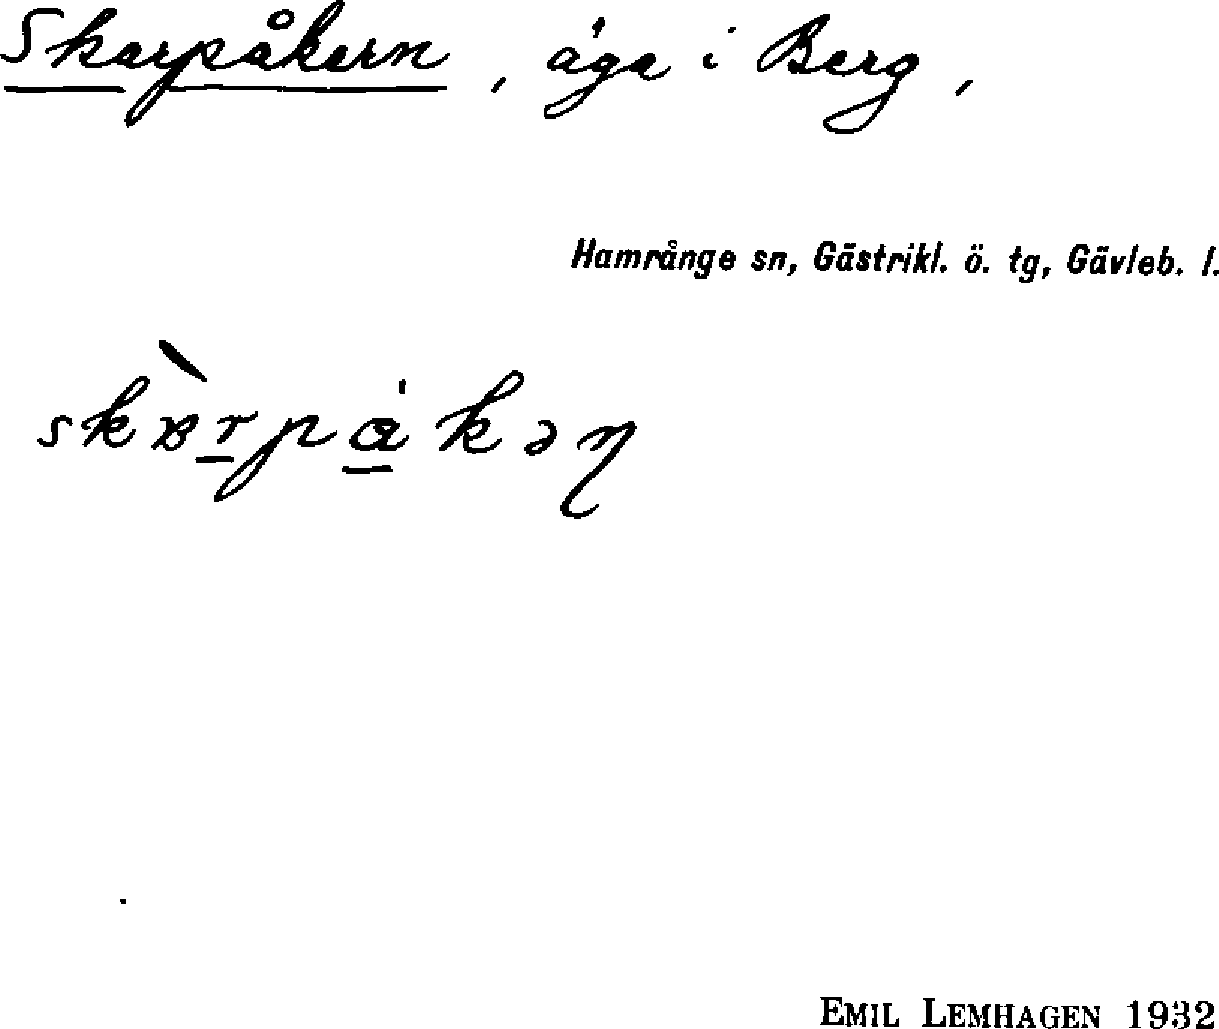 Skarpåkern, äga i Berg,
Hamrånge sn, Gästrikl. ö. tg, Gävleb. l.
EMIL LEMHAGEN 1932